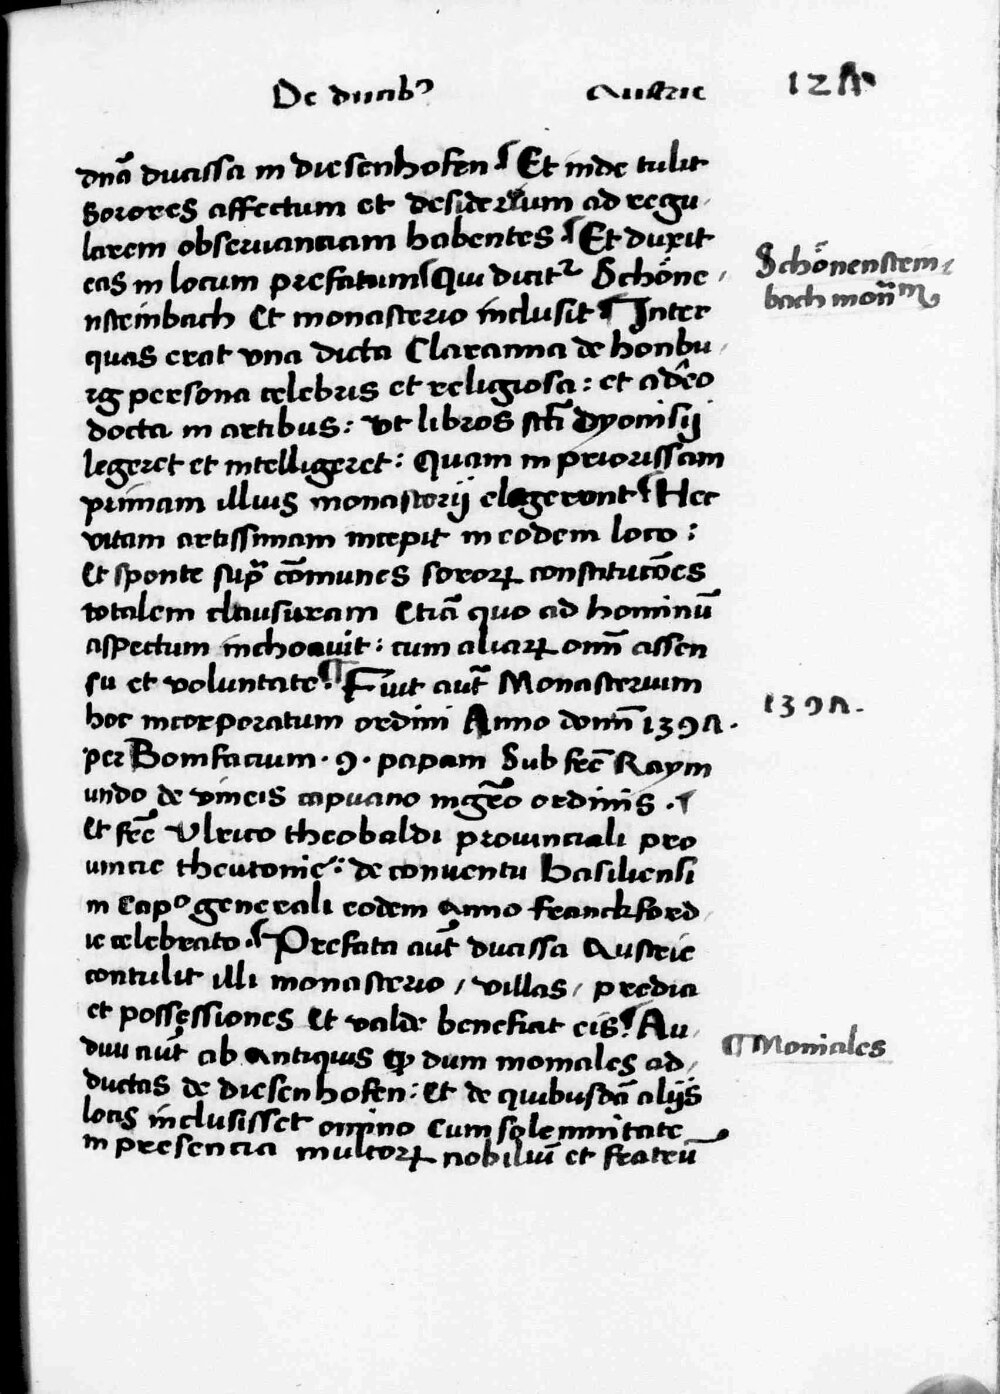 De ducibꝰ Austrie 127
dnā ducissa in diesenhofen ¶ Et inde tulit
sorores affectum et desiderium ad regu
larem obseruanciam habentes ¶ Et duxit
eas in locum prefatum ¶ Qui dicitr Schöne
Schönenstein
nsteinbach Et monasterio inclusit ¶ Inter
bach
quas erat vna dicta Claranna de honbu
rg persona celebris et religiosa : et adeo
docta in artibus : vt libros scti dyonisij
legeret et intelligeret : Quam in priorissam
primam illius monasterij elegerunt ¶ Hec
vitam artissimam incepit in eodem loco :
Et sponte supra cōmunes sororꝝ constitucōes
totalem clausuram Etiā quo ad hominū
aspectum inchoauit : cum aliarꝝ omnī assen
su et voluntate ¶ Fuit aut̄ Monasterium
hoc incorporatum ordini Anno domī 1397 .
1397 .
per Bonifacium . 9 . papam Sub frē Raym
undo de vineis capuano mgrō ordinis . ¶
Et frē Vlrico theobaldi prouinciali pro
uincie theutonie : de conuentu basiliensi
in Capo generali eodem anno franckford
ie celebrato . ¶ Prefata aut̄ ducissa Austrie
contulit illi monasterio / villas / predia
et possessiones Et valde benefiat eis ¶ Au
¶ Moniales
diui aut̄ ab antiquis ꝙ dum moniales ad
ductas de diesenhofen : Et de quibusdā alijs
locis inclusisset omnino Cum solemnitate
in presencia multorꝝ nobiliū et fratrū